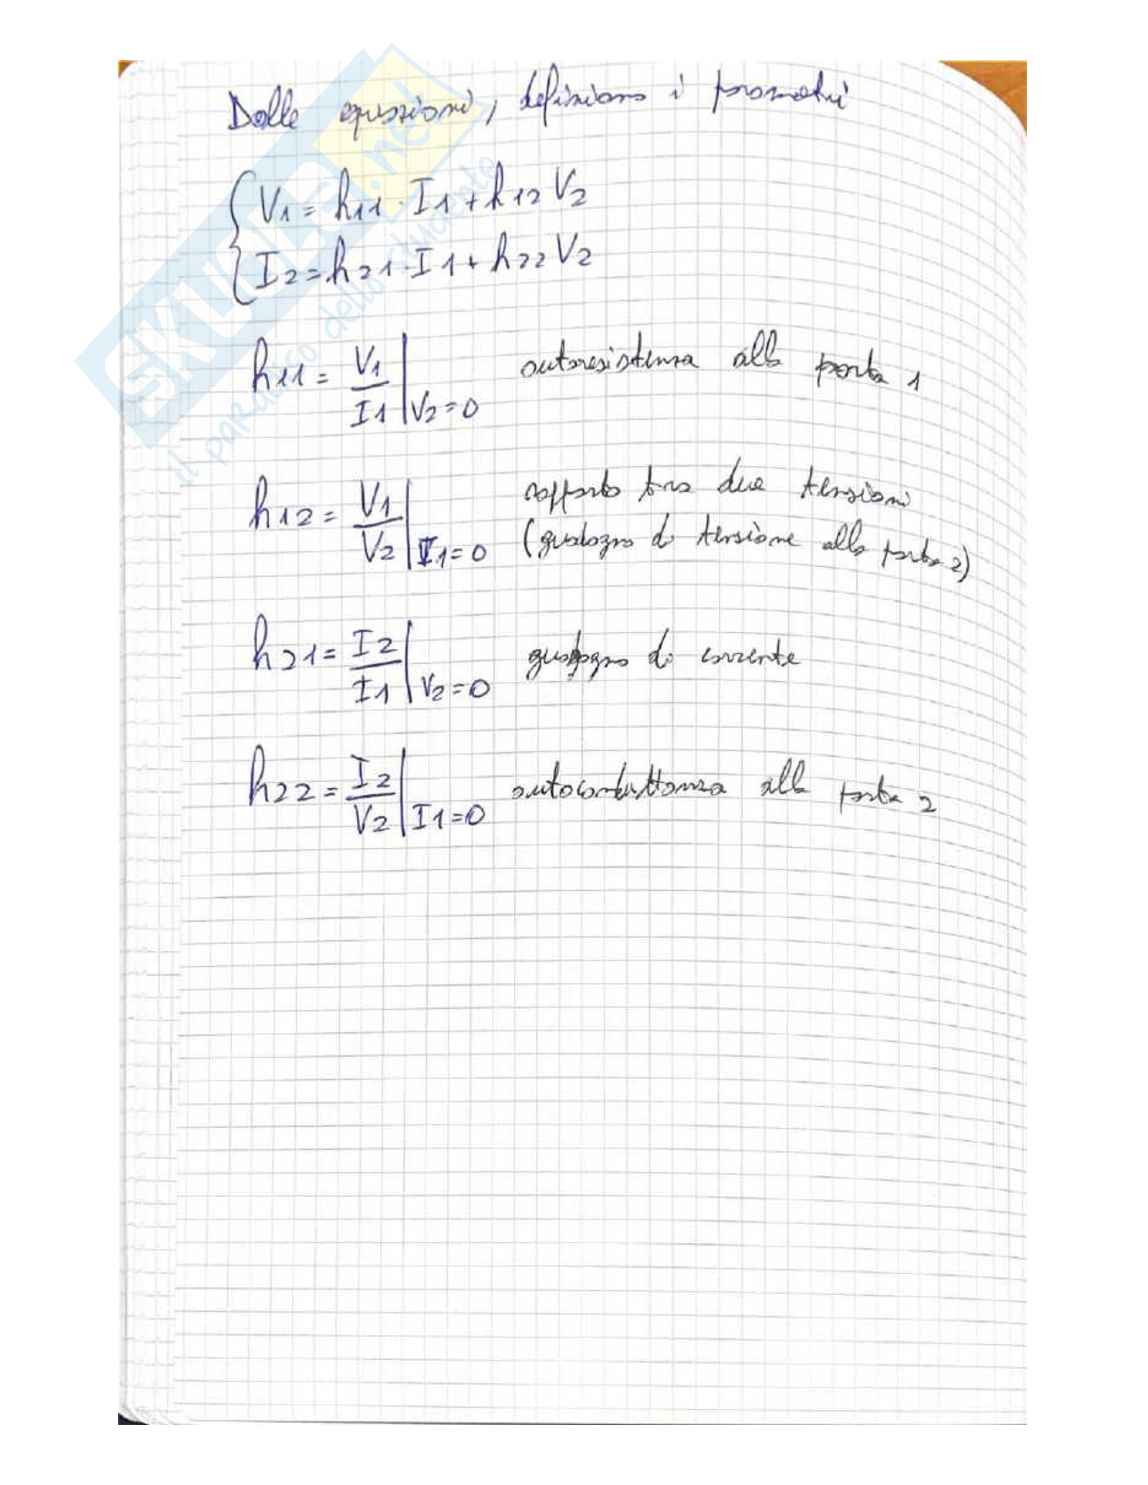 Dalle equazioni, definiamo i parametri
V1 = h11 · I1 + h12 V2
I2 = h21 · I1 + h22 V2
h11 = V1/I1 | V2=0 autoresistenza alla porta 1
h12 = V1/V2 | I1=0 rapporto tra due tensioni
(guadagno di tensione alla porta 2)
h21 = I2/I1 | V2=0 guadagno di corrente
h22 = I2/V2 | I1=0 autoconduttanza alla porta 2
SKUOLA.net
il paradiso dello studente